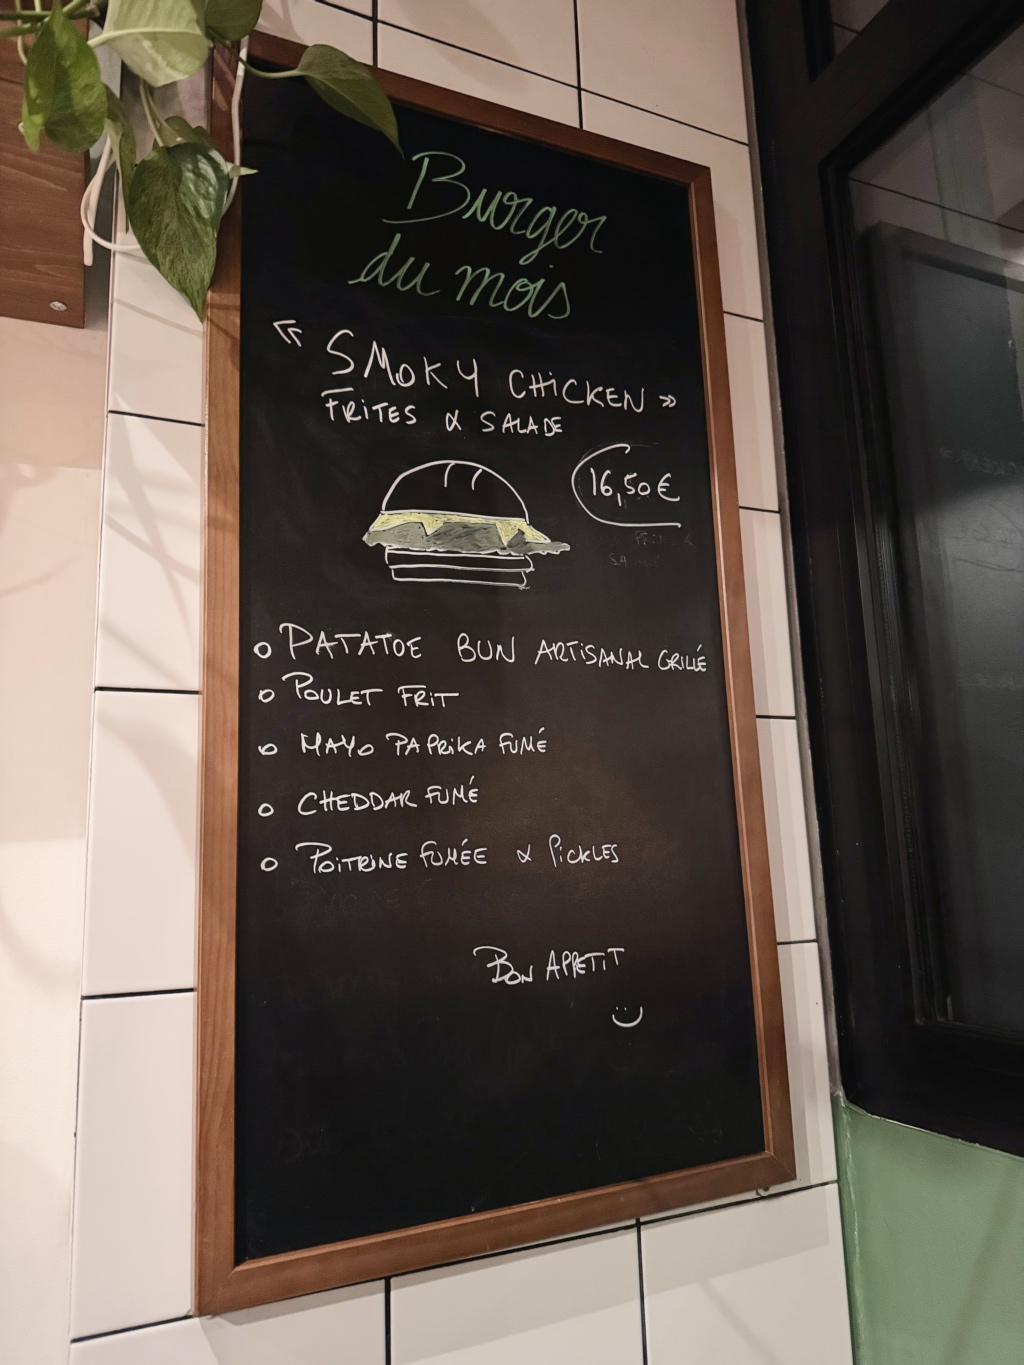 Burger
du mois
« SMOKY CHICKEN »
FRITES & SALADE
16,50€
o PATATOE BUN ARTISANAL GRILLÉ
o POULET FRIT
o MAYO PAPRIKA FUMÉ
o CHEDDAR FUMÉ
o POITRINE FUMÉE & PICKLES
BON APPETIT